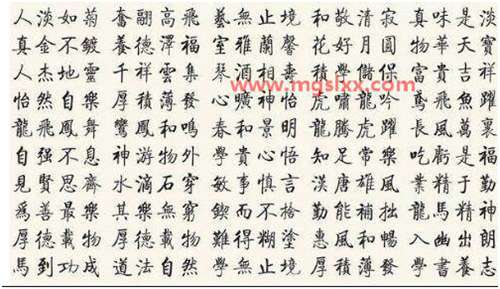 人淡如菊 奮翮高飛 藝無止境 和敬清寂 真味是淡
真金不鍍 養德澤福 室雅蘭馨 花好月圓 物華天寶
人杰地靈 千祥雲集 琴 酒 積學儲 富貴吉祥
www.mgslxx.com
怡然自樂 厚積薄發 心曠神怡 虎嘯龍吟 鳶飛魚躍
龍飛鳳舞 鸞鳳和鳴 春和景明 龍騰虎躍 長風萬裏
自强不息 神游物外 學貴心悟 知足常樂 吃虧是福
見賢思齊 水滴石穿 敏事慎言 漢唐雄風 業精于勤
為善最樂 其樂無窮 鍥而不捨 勤能補拙 龍馬精神
厚德載物 難得糊塗 惠風和暢 入幽出朗
馬到功成 道法自然 學無止境 厚積薄發 學書養志